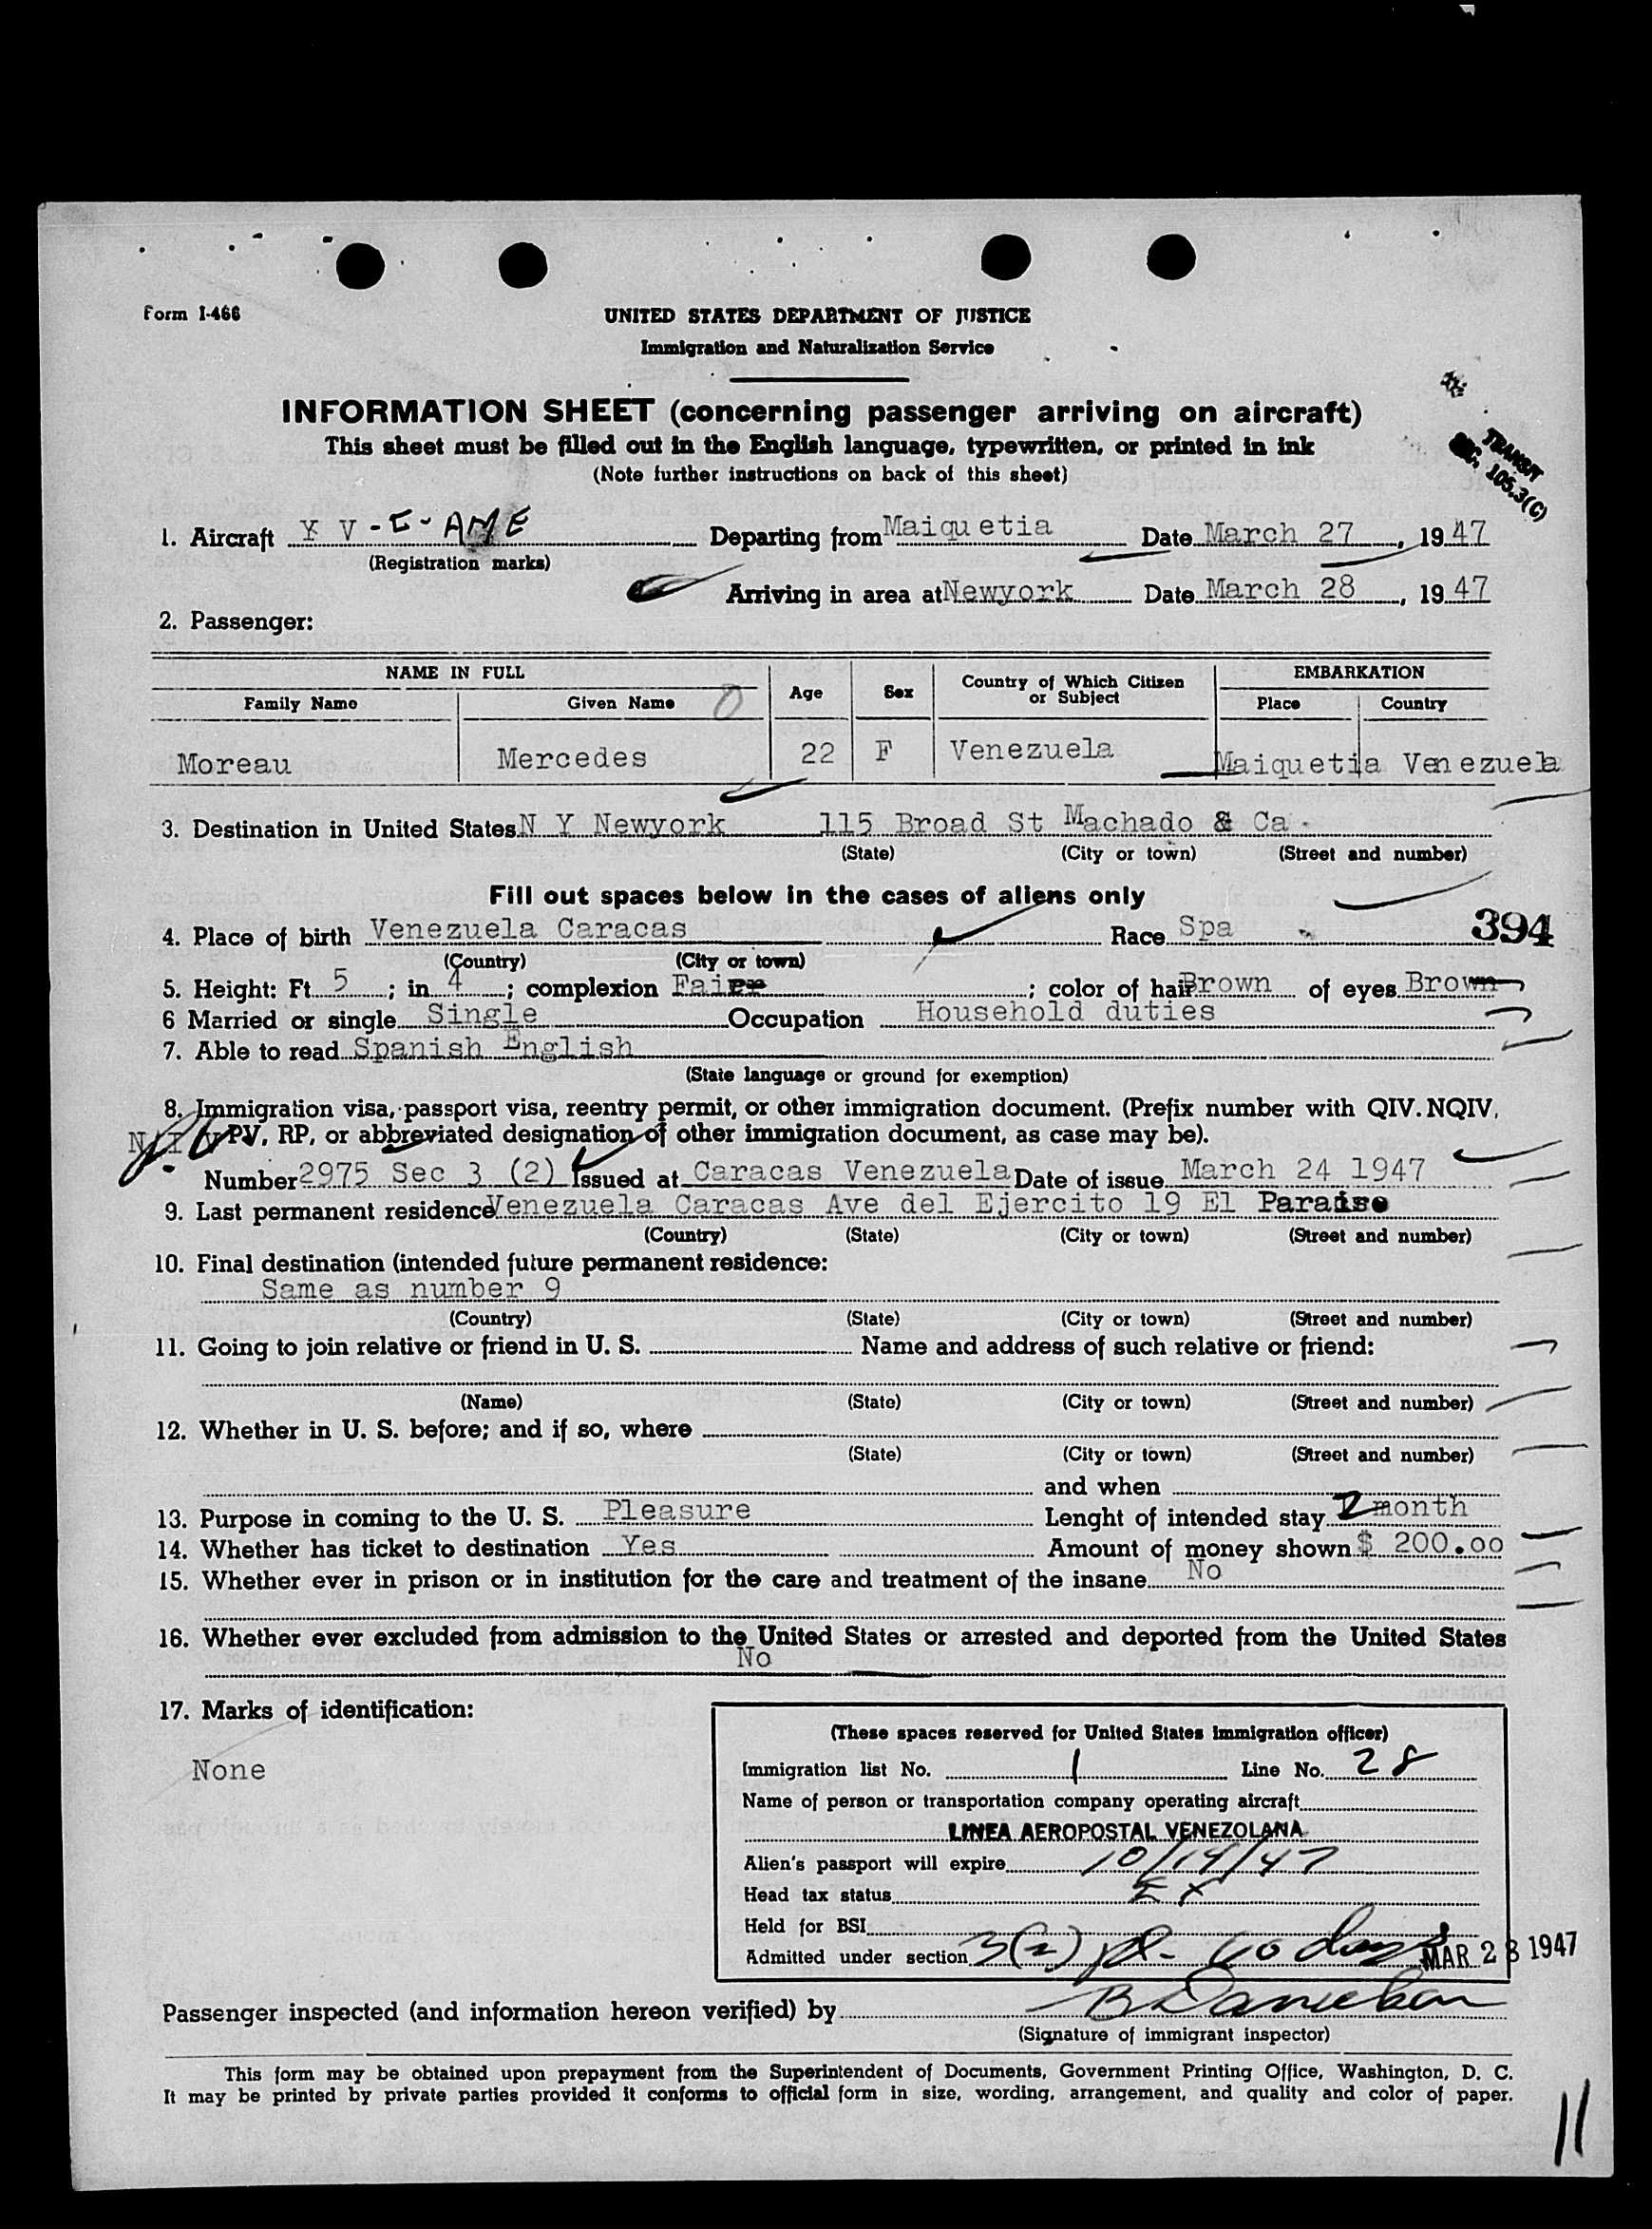 Form I-466
UNITED STATES DEPARTMENT OF JUSTICE
Immigration and Naturalization Service
INFORMATION SHEET (concerning passenger arriving on aircraft)
This sheet must be filled out in the English language, typewritten, or printed in ink
(Note further instructions on back of this sheet)
TRANSIT
SEC. 105.3(C)
1. Aircraft Y V - C - AME Departing from Maiquetia Date March 27, 1947
(Registration marks)
Arriving in area at Newyork Date March 28, 1947
2. Passenger:
NAME IN FULL EMBARKATION
Family Name Given Name Age Sex Country of Which Citizen or Subject Place Country
Moreau Mercedes 22 F Venezuela Maiquetia Venezuela
3. Destination in United States N Y Newyork 115 Broad St Machado & Ca.
(State) (City or town) (Street and number)
Fill out spaces below in the cases of aliens only
4. Place of birth Venezuela Caracas Race Spa 394
(Country) (City or town)
5. Height: Ft. 5; in. 4; complexion Fair; color of hair Brown of eyes Brown
6 Married or single Single Occupation Household duties
7. Able to read Spanish English
(State language or ground for exemption)
8. Immigration visa, passport visa, reentry permit, or other immigration document. (Prefix number with QIV. NQIV,
PV, RP, or abbreviated designation of other immigration document, as case may be).
Number 2975 Sec 3 (2) Issued at Caracas Venezuela Date of issue March 24 1947
9. Last permanent residence Venezuela Caracas Ave del Ejercito 19 El Paraiso
(Country) (State) (City or town) (Street and number)
10. Final destination (intended future permanent residence:
Same as number 9
(Country) (State) (City or town) (Street and number)
11. Going to join relative or friend in U. S. Name and address of such relative or friend:
(Name) (State) (City or town) (Street and number)
12. Whether in U. S. before; and if so, where
(State) (City or town) (Street and number)
and when
13. Purpose in coming to the U. S. Pleasure Lenght of intended stay 2 month
14. Whether has ticket to destination Yes Amount of money shown $ 200.00
15. Whether ever in prison or in institution for the care and treatment of the insane No
16. Whether ever excluded from admission to the United States or arrested and deported from the United States
No
17. Marks of identification:
None
(These spaces reserved for United States immigration officer)
Immigration list No. 1 Line No. 28
Name of person or transportation company operating aircraft
LINEA AEROPOSTAL VENEZOLANA
Alien's passport will expire 10/14/47
Head tax status EX
Held for BSI
Admitted under section 3(2) pl- 60 days MAR 28 1947
Passenger inspected (and information hereon verified) by B Danielson
(Signature of immigrant inspector)
This form may be obtained upon prepayment from the Superintendent of Documents, Government Printing Office, Washington, D. C.
It may be printed by private parties provided it conforms to official form in size, wording, arrangement, and quality and color of paper.
11